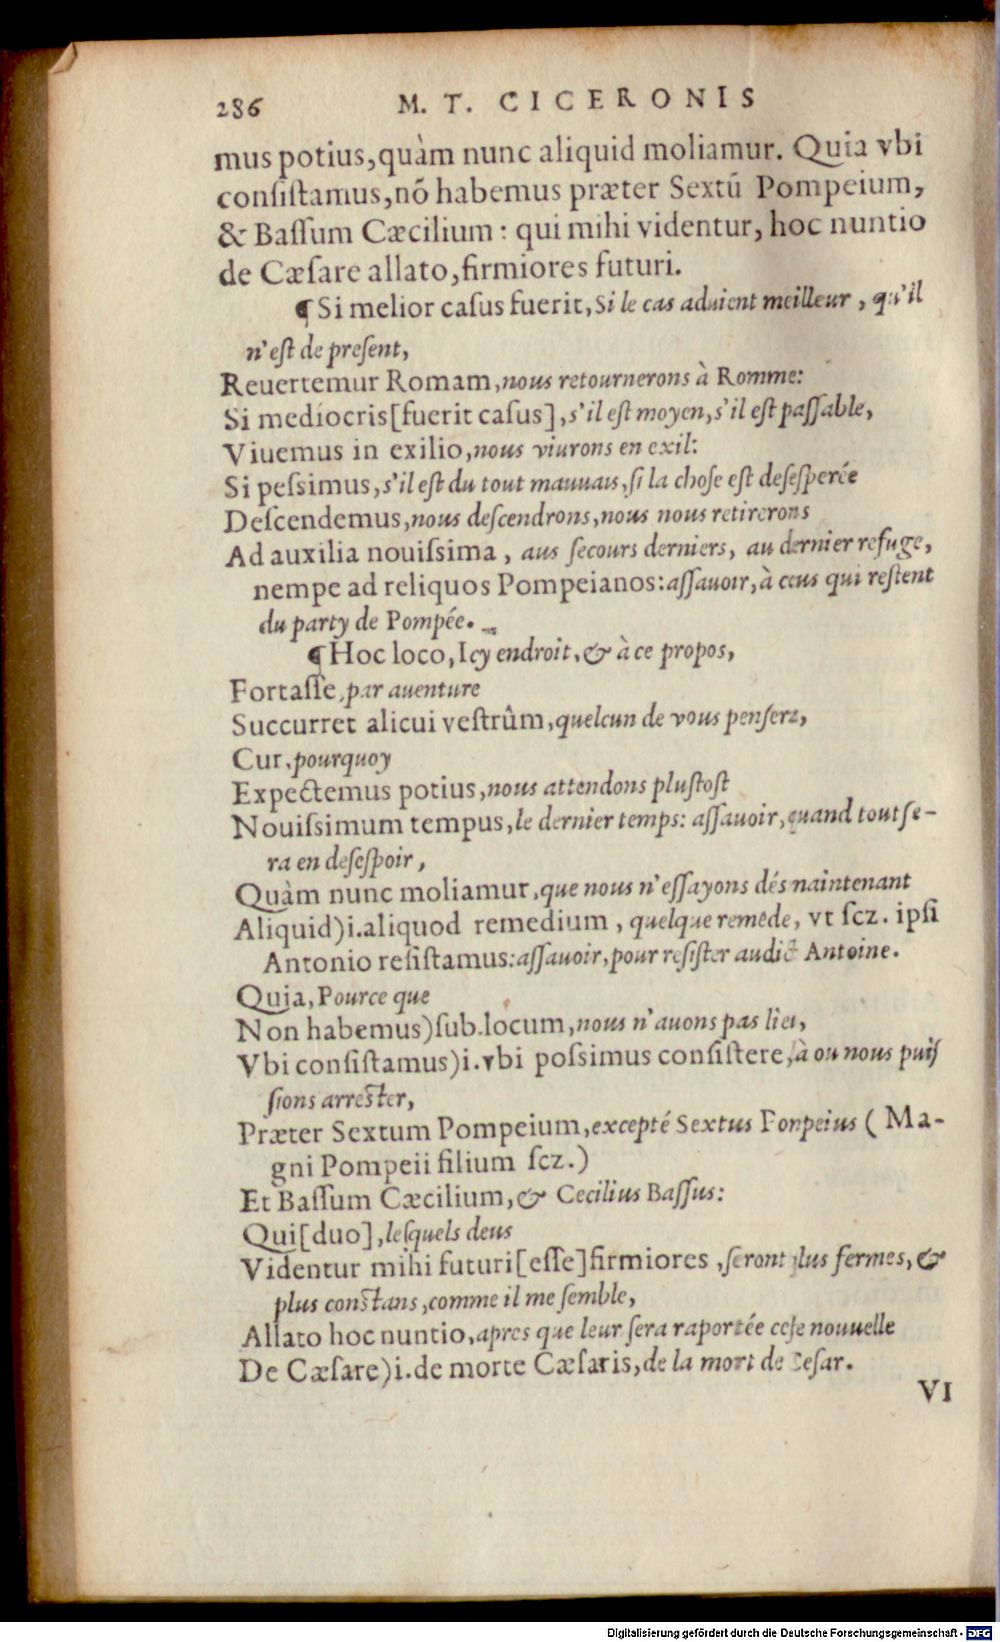 286 M. T. CICERONIS
mus potius, quàm nunc aliquid moliamur. Quia vbi
consistamus, nõ habemus præter Sextũ Pompeium,
& Baſſum Cæcilium : qui mihi videntur, hoc nuntio
de Cæſare allato, firmiores futuri.
¶ Si melior caſus fuerit, Si le cas aduient meilleur, qu'il
n'eſt de preſent,
Reuertemur Romam, nous retournerons à Romme:
Si mediocris [fuerit caſus], s'il eſt moyen, s'il eſt paſſable,
Viuemus in exilio, nous viurons en exil:
Si peſsimus, s'il eſt du tout mauuais, ſi la choſe eſt deſeſperée
Deſcendemus, nous deſcendrons, nous nous retirerons
Ad auxilia nouiſsima, aus ſecours derniers, au dernier refuge,
nempe ad reliquos Pompeianos: aſſauoir, à ceus qui reſtent
du party de Pompée.
¶ Hoc loco, Icy endroit, & à ce propos,
Fortaſſe, par auenture
Succurret alicui veſtrûm, quelcun de vous penſera,
Cur, pourquoy
Expectemus potius, nous attendons pluſtoſt
Nouiſsimum tempus, le dernier temps: aſſauoir, quand tout ſe-
ra en deſeſpoir,
Quàm nunc moliamur, que nous n'eſſayons dés naintenant
Aliquid)i. aliquod remedium, quelque remede, vt ſcz. ipſi
Antonio reſiſtamus: aſſauoir, pour reſiſter audict Antoine.
Quia, Pource que
Non habemus)ſub. locum, nous n'auons pas lieu,
Vbi conſiſtamus)i. vbi poſsimus conſiſtere, là ou nous puiſ
ſions arreſter,
Præter Sextum Pompeium, excepté Sextus Pompeius (Ma-
gni Pompeii filium ſcz.)
Et Baſſum Cæcilium, & Cecilius Baſſus:
Qui [duo], leſquels deus
Videntur mihi futuri [eſſe] firmiores, ſeront plus fermes, &
plus conſtans, comme il me ſemble,
Allato hoc nuntio, apres que leur ſera raportée ceſte nouuelle
De Cæſare)i. de morte Cæſaris, de la mort de Ceſar.
VI
Digitalisierung gefördert durch die Deutsche Forschungsgemeinschaft - DFG